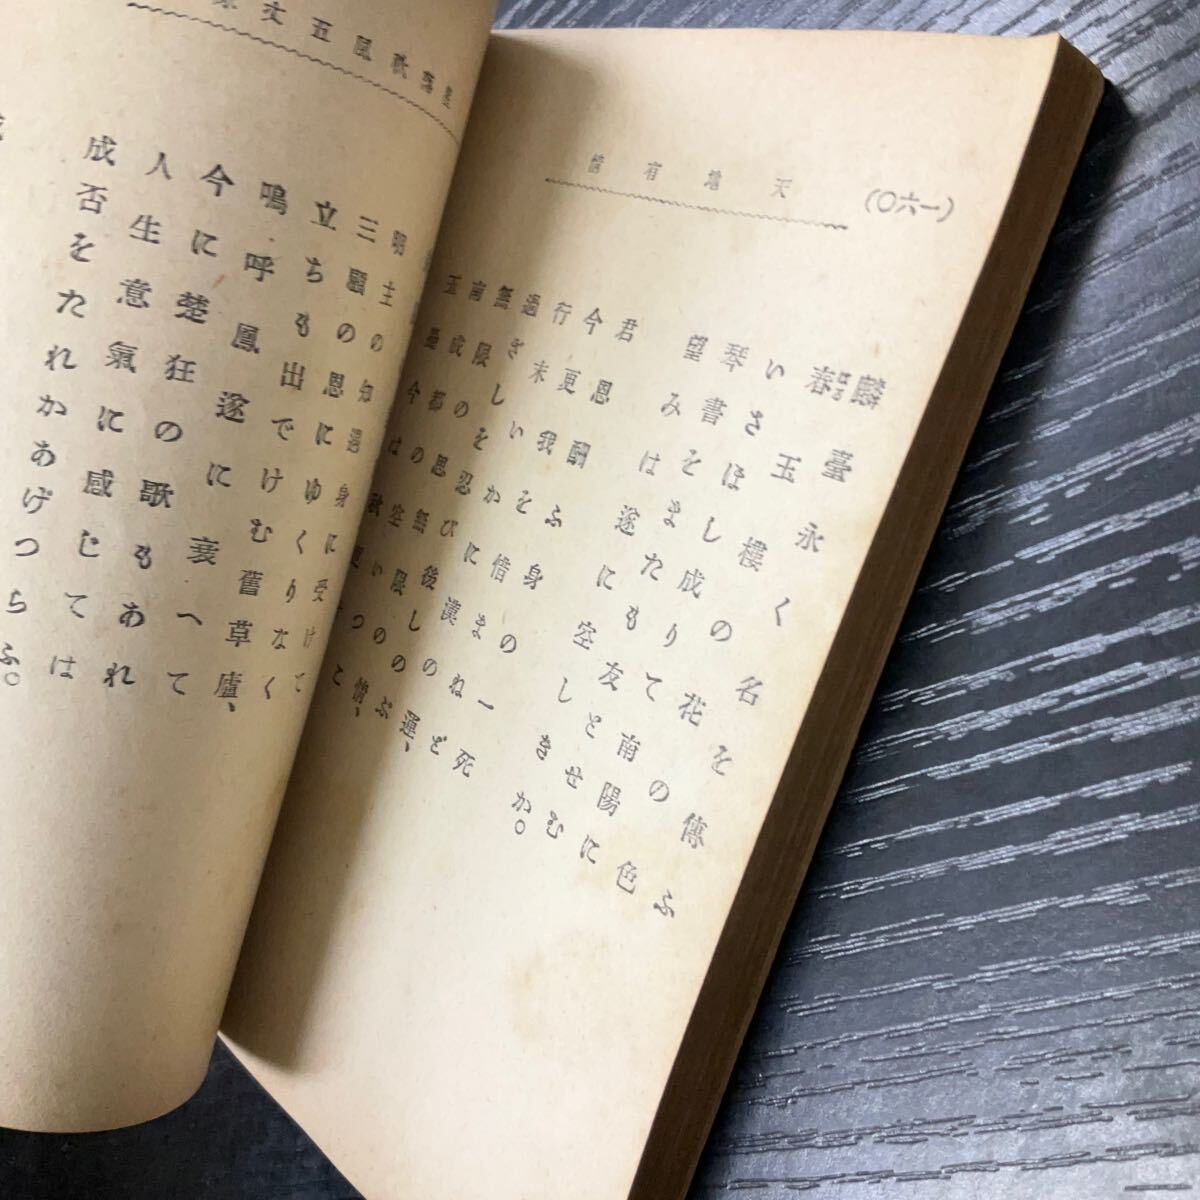 (一六〇)
天地有情
麟臺永く名を傳ふ
春玉樓の花の色
いさほし成りて南陽に
琴書をまたも友とせむ
望みは遂に空しきか。
君恩酬ふ身の一死
今更我を惜まねど
行末いかに漢の運、
過ぎしを忍び後しのぶ
無限の思無限の情、
南成都の空いつこ
玉壘今は秋更けて
星落秋風五丈原
明主の知遇身に受けて
三顧の恩にゆくりなく
立ちも出でけむ舊草廬、
嗚呼鳳遂に衰へて
今に楚狂の歌もあれ
人生意氣に感じては
成否をたれかあげつらふ。